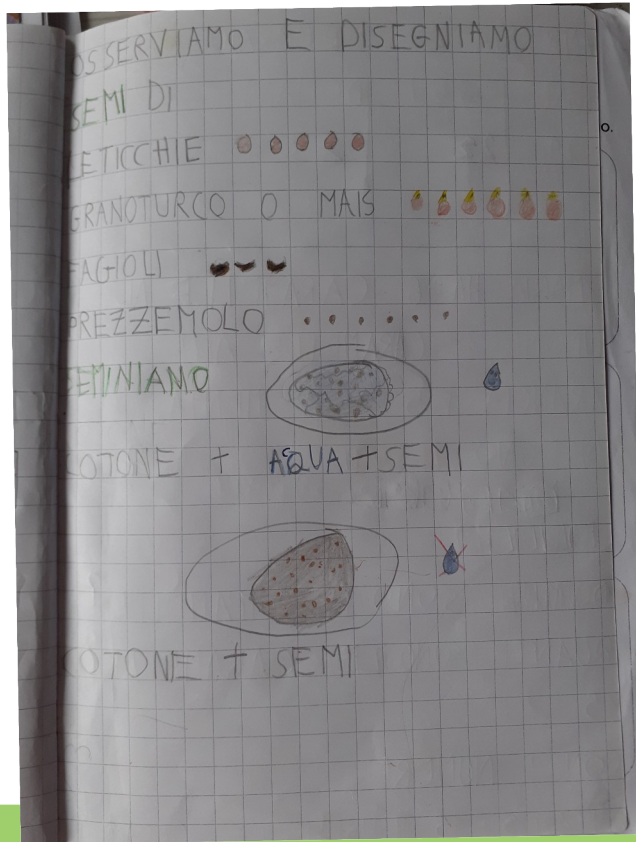 OSSERVIAMO E DISEGNIAMO
SEMI DI
LETICCHIE
GRANOTURCO O MAIS
FAGIOLI
PREZZEMOLO
SEMINIAMO
COTONE + AQUA + SEMI
COTONE + SEMI
o.